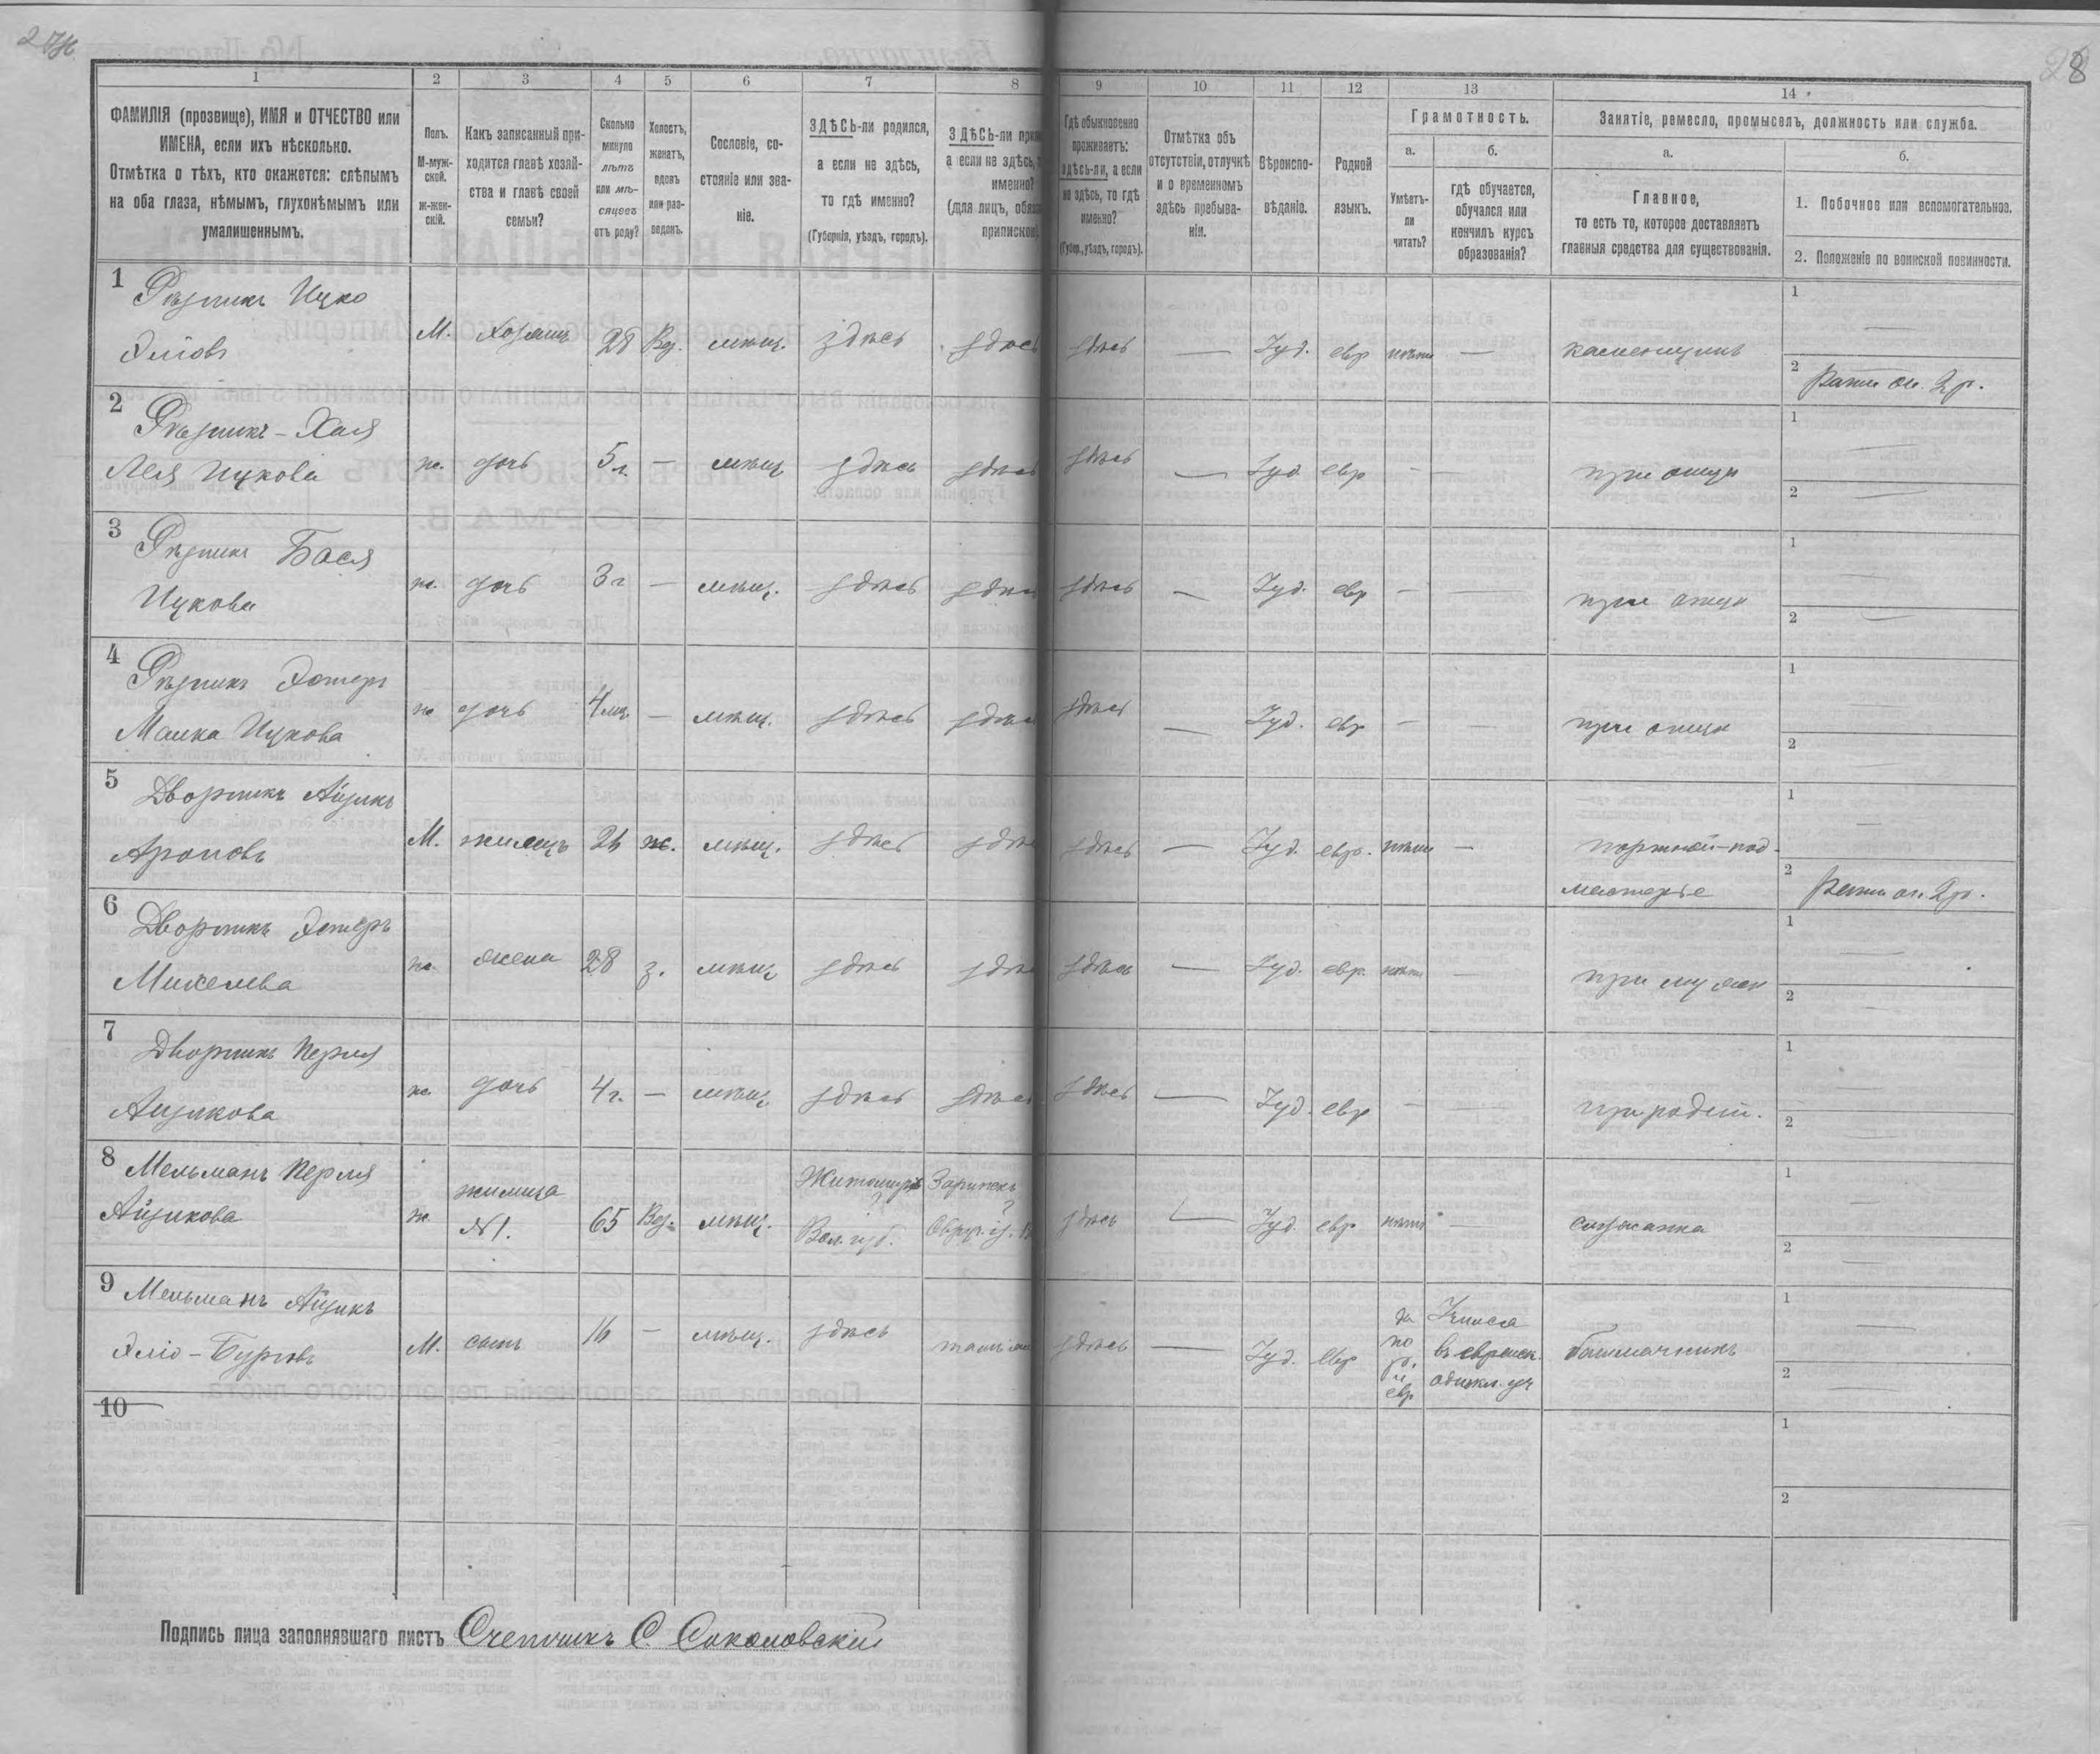 28
1 2 3 4 5 6 7 8 9 10 11 12 13 14
ФАМИЛІЯ (прозвище), ИМЯ и ОТЧЕСТВО или
ИМЕНА, если ихъ нѣсколько.
Отмѣтка о тѣхъ, кто окажется: слѣпымъ
на оба глаза, нѣмымъ, глухонѣмымъ или
умалишеннымъ.
Полъ.
М-муж-
ской.
Ж-жен-
скій.
Какъ записанный при-
ходится главѣ хозяй-
ства и главѣ своей
семьи?
Сколько
минуло
лѣтъ
или мѣ-
сяцевъ
отъ роду?
Холостъ,
женатъ,
вдовъ
или раз-
веденъ.
Сословіе, со-
стояніе или зва-
ніе.
ЗДѢСЬ-ли родился,
а если не здѣсь,
то гдѣ именно?
(Губернія, уѣздъ, городъ).
ЗДѢСЬ-ли
а если не здѣсь,
именно?
(для лицъ,
Гдѣ обыкновенно
проживаетъ:
здѣсь-ли, а если
не здѣсь, то гдѣ
именно?
(Губер., уѣздъ, городъ).
Отмѣтка объ
отсутствіи, отлучкѣ
и о временномъ
здѣсь пребыва-
ніи.
Вѣроиспо-
вѣданіе.
Родной
языкъ.
Грамотность.
а.
Умѣетъ-
ли
читать?
б.
гдѣ обучается,
обучался или
кончилъ курсъ
образованія?
Занятіе, ремесло, промыселъ, должность или служба.
а.
Главное,
то есть то, которое доставляетъ
главныя средства для существованія.
б.
1. Побочное или вспомогательное.
2. Положеніе по воинской повинности.
1 Рѣзникъ Ицко
Эліовъ
М. Хозяинъ 28 Вд. мѣщ. здѣсь здѣсь здѣсь — Іуд. евр нѣтъ — каменщикъ
1 —
2 Ратн оп. 2 р.
2 Рѣзникъ - Хая
Лея Ицкова
ж. дочь 5 л. — мѣщ здѣсь здѣсь здѣсь — Іуд евр — — при отцѣ
1 —
2 —
3 Рѣзникъ Бася
Ицкова
ж. дочь 3 г — мѣщ. здѣсь здѣсь здѣсь — Іуд. евр — — при отцѣ
1 —
2 —
4 Рѣзникъ Эстеръ
Малка Ицкова
ж дочь 4 мц. — мѣщ. здѣсь здѣсь здѣсь — Іуд. евр — — при отцѣ
1
2
5 Дворникъ Айзикъ
Ароновъ
М. жилецъ 26 ж. мѣщ. здѣсь здѣсь здѣсь — Іуд. евр. нѣтъ — портной - под-
мастерье
1 —
2 Ратн оп. 2 р.
6 Дворникъ Эстеръ
Михелева
ж. жена 28 з. мѣщ здѣсь здѣсь здѣсь — Іуд. евр. нѣтъ — при мужѣ
1 —
2 —
7 Дворникъ Перля
Айзикова
ж. дочь 4 г. — мѣщ здѣсь здѣсь здѣсь — Іуд. евр — — при родит.
1 —
2 —
8 Мельманъ Перля
Айзикова
ж. жилица
№1.
65 Вд. мѣщ. Житомиръ
Вол. губ.
Овруч. у.
здѣсь — Іуд. евр нѣтъ —
1 —
2 —
9 Мельманъ Айзикъ
Эліо - Бурховъ
М. сынъ 16 — мѣщ. здѣсь тамъ здѣсь — Іуд. евр
да
по
р.
и
евр
въ еврейск.
башмачникъ
1
2
10
1
2
Подпись лица заполнявшаго листъ Счетчикъ С. Соколовскій